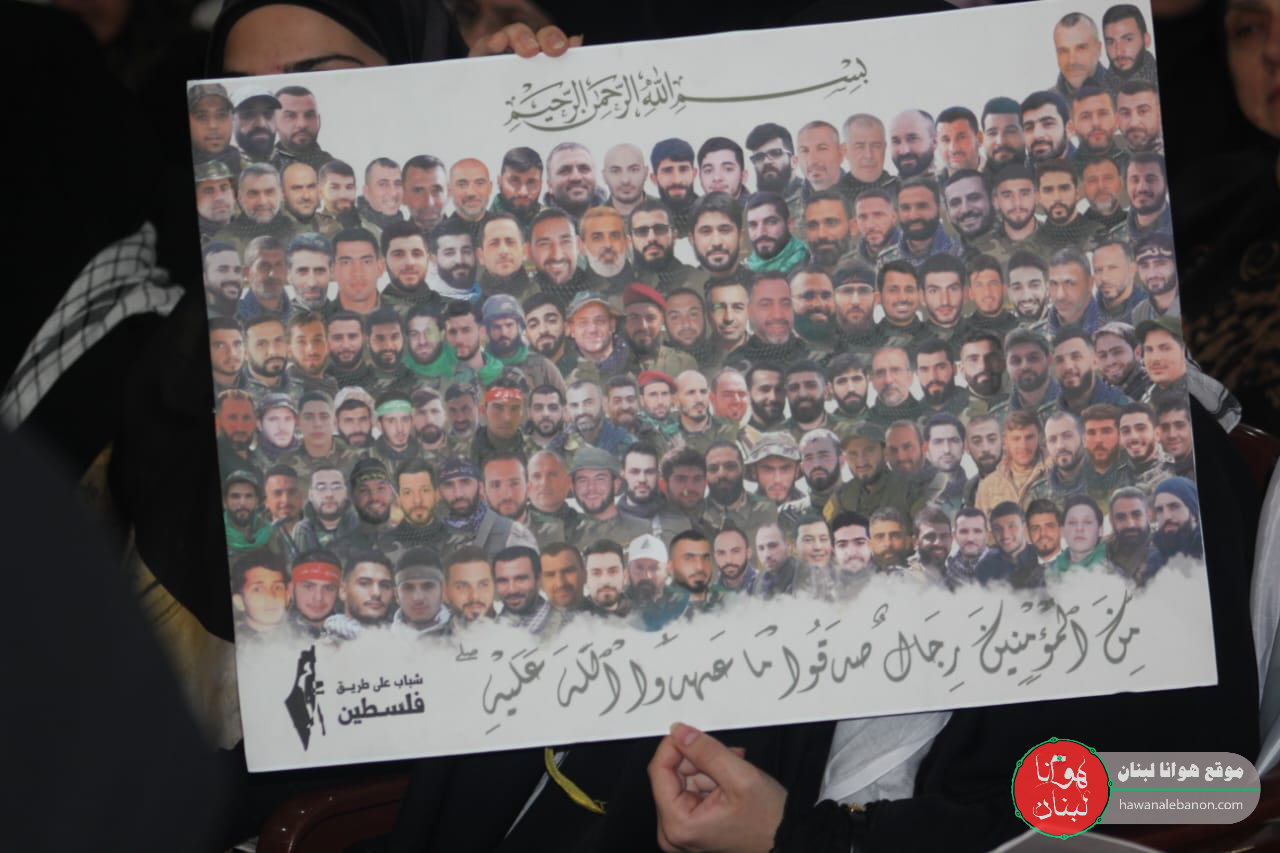 بِسْمِ اللهِ الرَّحْمَنِ الرَّحِيْمِ
مِنَ الْمُؤْمِنِينَ رِجَالٌ صَدَقُوا مَا عَاهَدُوا اللَّهَ عَلَيْهِ ۖ
شباب على طريق
فلسطين
هوانا
لبنان
موقع هوانا لبنان
hawanalebanon.com